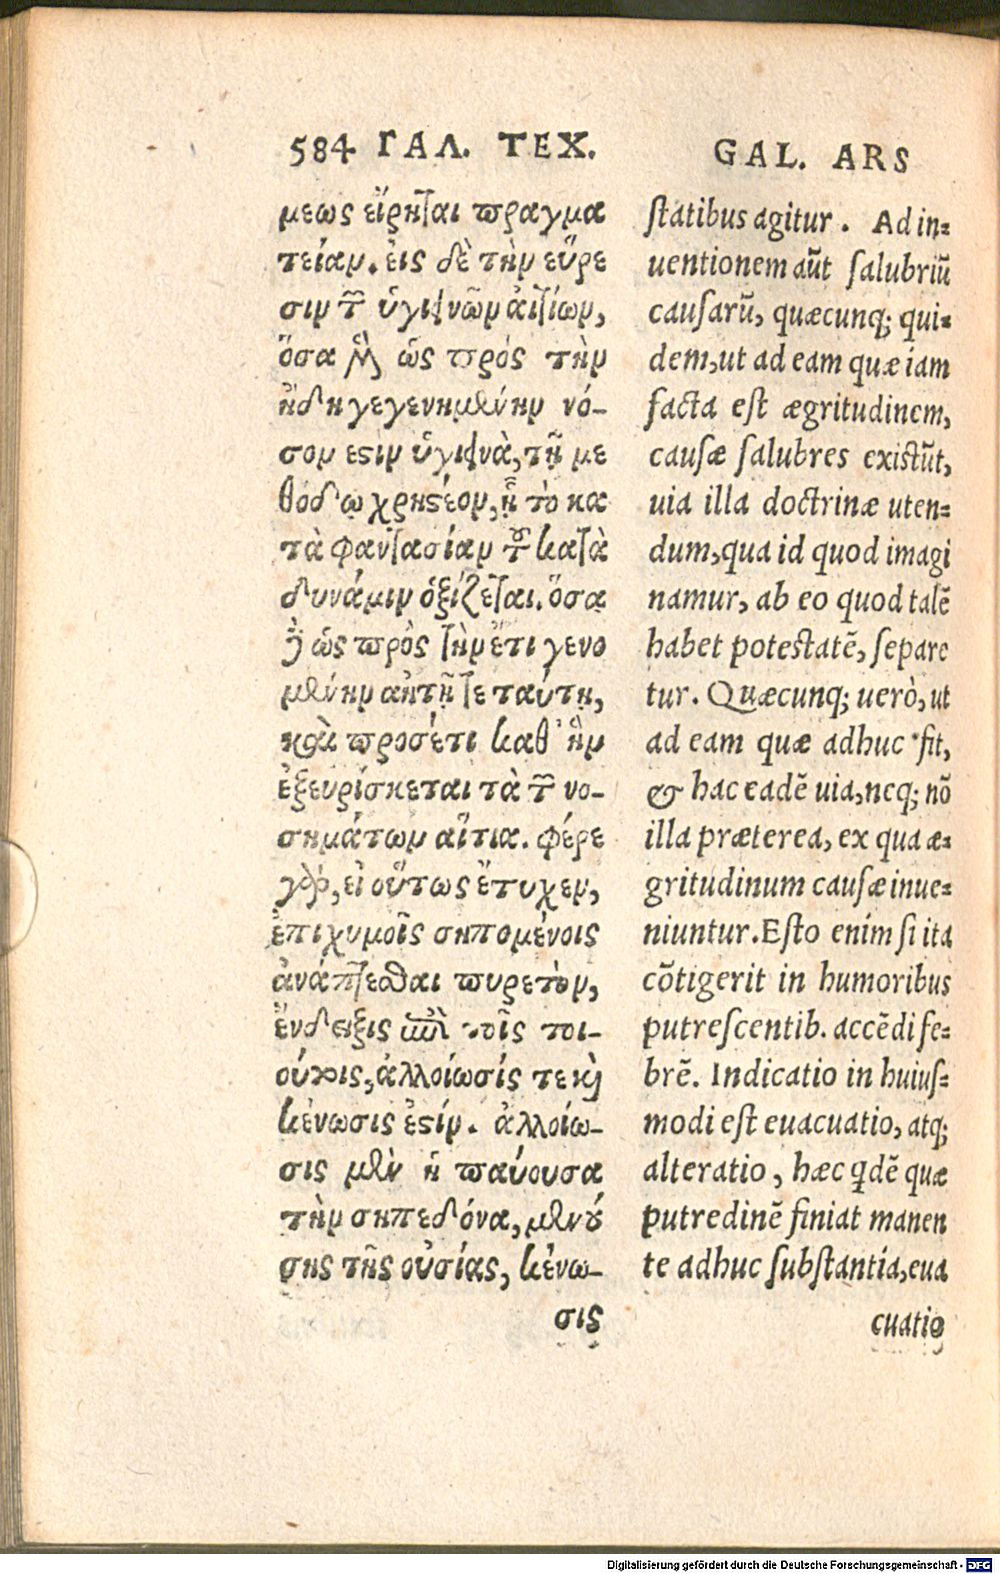 584 ΓΑΛ. ΤΕΧ.
μεως εἴρηται πραγμα
τείαν. εἰς δὲ τὴν εὕρε
σιν τῶν ὑγιεινῶν αἰτίων,
ὅσα μὲν ὡς πρὸς τὴν
ἤδη γεγενημένην νό-
σον ἐστιν ὑγιεινὰ, τῇ με
θόδῳ χρηστέον, ᾗ τὸ κα
τὰ φαντασίαν τοῦ κατὰ
δύναμιν ὁρίζεται. ὅσα
δὲ ὡς πρὸς τὴν ἔτι γενο
μένην αὐτῇ τε ταύτῃ,
καὶ προσέτι καθ' ἣν
ἐξευρίσκεται τὰ τῶν νο-
σημάτων αἴτια. φέρε
γὰρ, εἰ οὕτως ἔτυχεν,
ἐπὶ χυμοῖς σηπομένοις
ἀνάπτεσθαι πυρετὸν,
ἔνδειξις ἐπὶ τοῖς τοι-
ούτοις, ἀλλοίωσίς τε καὶ
κένωσις ἐστίν. ἀλλοίω-
σις μὲν ἡ παύουσα
τὴν σηπεδόνα, μενού
σης τῆς οὐσίας, κένω-
σις
GAL. ARS
statibus agitur. Ad in-
uentionem aūt salubriū
causarū, quæcunq; qui-
dem, ut ad eam quæ iam
facta est ægritudinem,
causæ salubres existūt,
uia illa doctrinæ uten-
dum, qua id quod imagi
namur, ab eo quod talē
habet potestatē, separe
tur. Quæcunq; uerò, ut
ad eam quæ adhuc fit,
& hac eadē uia, neq; nō
illa præterea, ex qua æ-
gritudinum causæ inue-
niuntur. Esto enim si ita
cōtigerit in humoribus
putrescentib. accēdi fe-
brē. Indicatio in huius-
modi est euacuatio, atq;
alteratio, hæc qdē quæ
putredinē finiat manen
te adhuc substantia, eua
cuatio
Digitalisierung gefördert durch die Deutsche Forschungsgemeinschaft - DFG